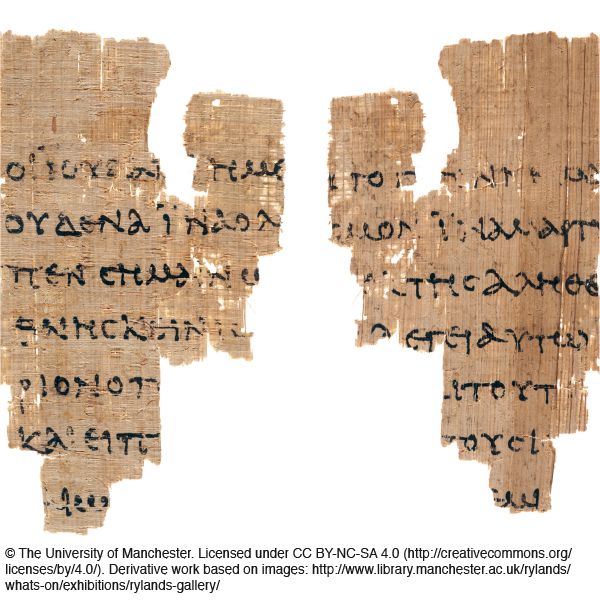 ΟΙ ΙΟΥΔΑΙ ΗΜΕ
ΟΥΔΕΝΑ ΙΝΑ Ο ΛΟ
ΠΕΝ ϹΗΜΑΙΝΩ
ΘΝΗϹΚΕΙΝ ΙϹ
ΡΙΟΝ Ο Π
ΚΑΙ ΕΙΠ
ΑΙΩ
ΤΟ ΓΕΓΕΝΝΗΜΑΙ
ϹΜΟΝ ΙΝΑ ΜΑΡΤΥ
ΕΚ ΤΗϹ ΑΛΗΘΕ
ΛΕΓΕΙ ΑΥΤΩ
ΑΙ ΤΟΥΤ
ΤΟΥϹ Ι
ΕΜΙ
© The University of Manchester. Licensed under CC BY-NC-SA 4.0 (http://creativecommons.org/
licenses/by/4.0/). Derivative work based on images: http://www.library.manchester.ac.uk/rylands/
whats-on/exhibitions/rylands-gallery/